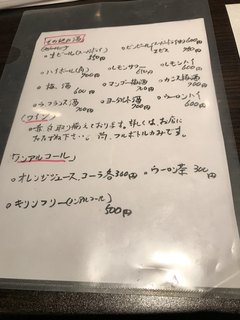 その他お酒
・生ビール(スーパードライ) 550円
・ビンビール(スーパードライ中) 600円
ヱビス 700円
・ハイボール(角) 700円
・レモンサワー 600円
・レモンハイ 600円
・梅酒 600円
・マンゴー梅酒 700円
・カシス梅酒 700円
・ラ・フランス酒 700円
・ヨーグルト酒 700円
・ウーロンハイ 600円
(ワイン)
・赤、白取り揃えております。詳しくは、お店に
おたずね下さい。尚、フルボトルのみです。
ノンアルコール
・オレンジジュース、コーラ各300円
・ウーロン茶 300円
・キリンフリー(ノンアルコール) 500円